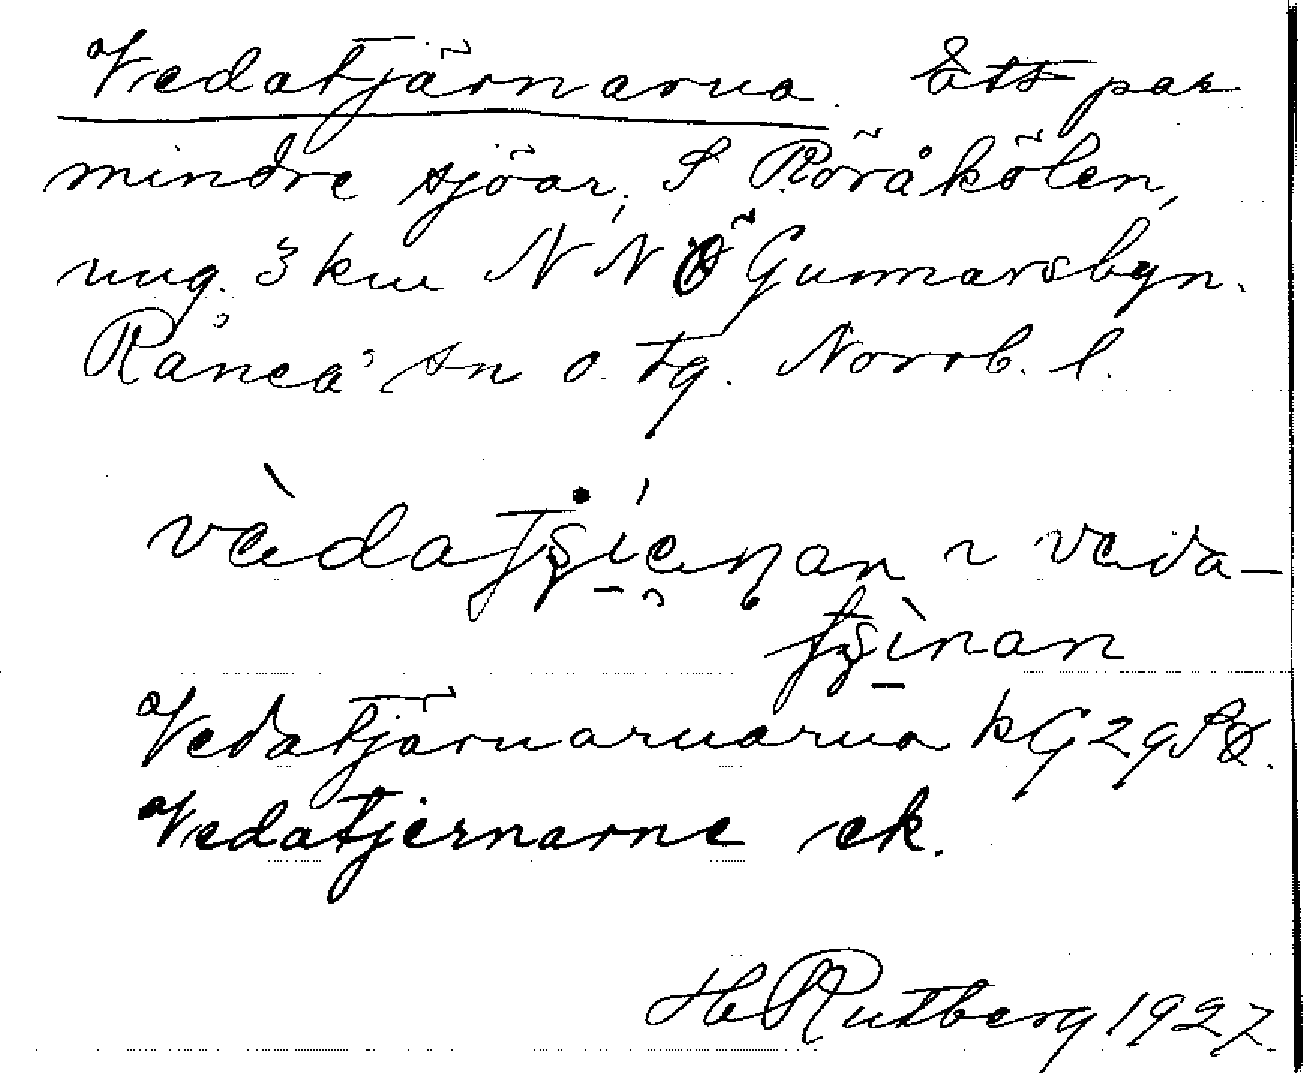 Vedatjärnarna. Ett par
mindre sjöar, S Röråkölen,
ung. 3 km N N Ö Gunnarsbyn.
Råneå sn o. tg. Norrb. l.
Vedatjärnarnarna kG29SÖ.
Vedatjernarne ek.
H Rutberg 1927.